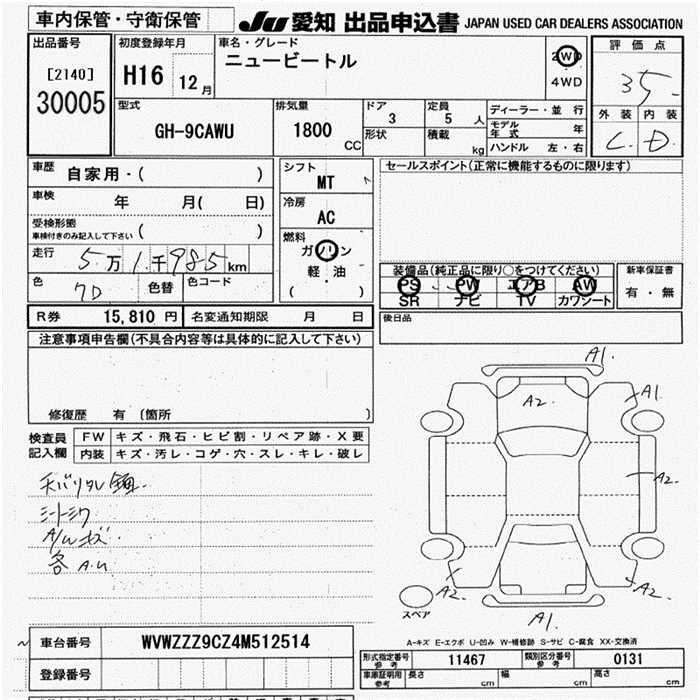 車内保管・守衛保管
JU 愛知 出品申込書 JAPAN USED CAR DEALERS ASSOCIATION
出品番号
[2140]
30005
初度登録年月
H16 12月
車名・グレード
ニュービートル
2WD
4WD
評価点
35
外装 内装
C D
型式
GH-9CAWU
排気量
1800 CC
ドア
3
定員
5 人
形状
積載
kg
ディーラー・並行
モデル年式 年
ハンドル 左・右
車歴 自家用・( )
車検 年 月( 日)
受検形態
車検付きのみ記入して下さい ( )
走行 5万1千985km
色 7D 色替 色コード
シフト
MT
冷房
AC
燃料
ガソリン
軽・油
( )
セールスポイント(正常に機能するものに限ります)
装備品(純正品に限り○をつけてください)
PS PW エアB AW
SR ナビ TV カワシート
新車保証書
有・無
後日品
R券 15,810 円 名変通知期限 月 日
注意事項申告欄(不具合内容等は具体的に記入して下さい)
修復歴 有 (箇所 )
検査員記入欄
FW キズ・飛石・ヒビ割・リペア跡・X要
内装 キズ・汚レ・コゲ・穴・スレ・キレ・破レ
シートシワ
A/Wキズ
各 A.U
A1.
A2.
A1
A2
A2
A2
A1
スペア
A-キズ E-エクボ U-凹み W-補修跡 S-サビ C-腐食 XX-交換済
車台番号 WVWZZZ9CZ4M512514
登録番号
形式指定番号 参考 11467 類別区分番号 参考 0131
車庫証明用 参考 長さ cm 幅 cm 高さ cm